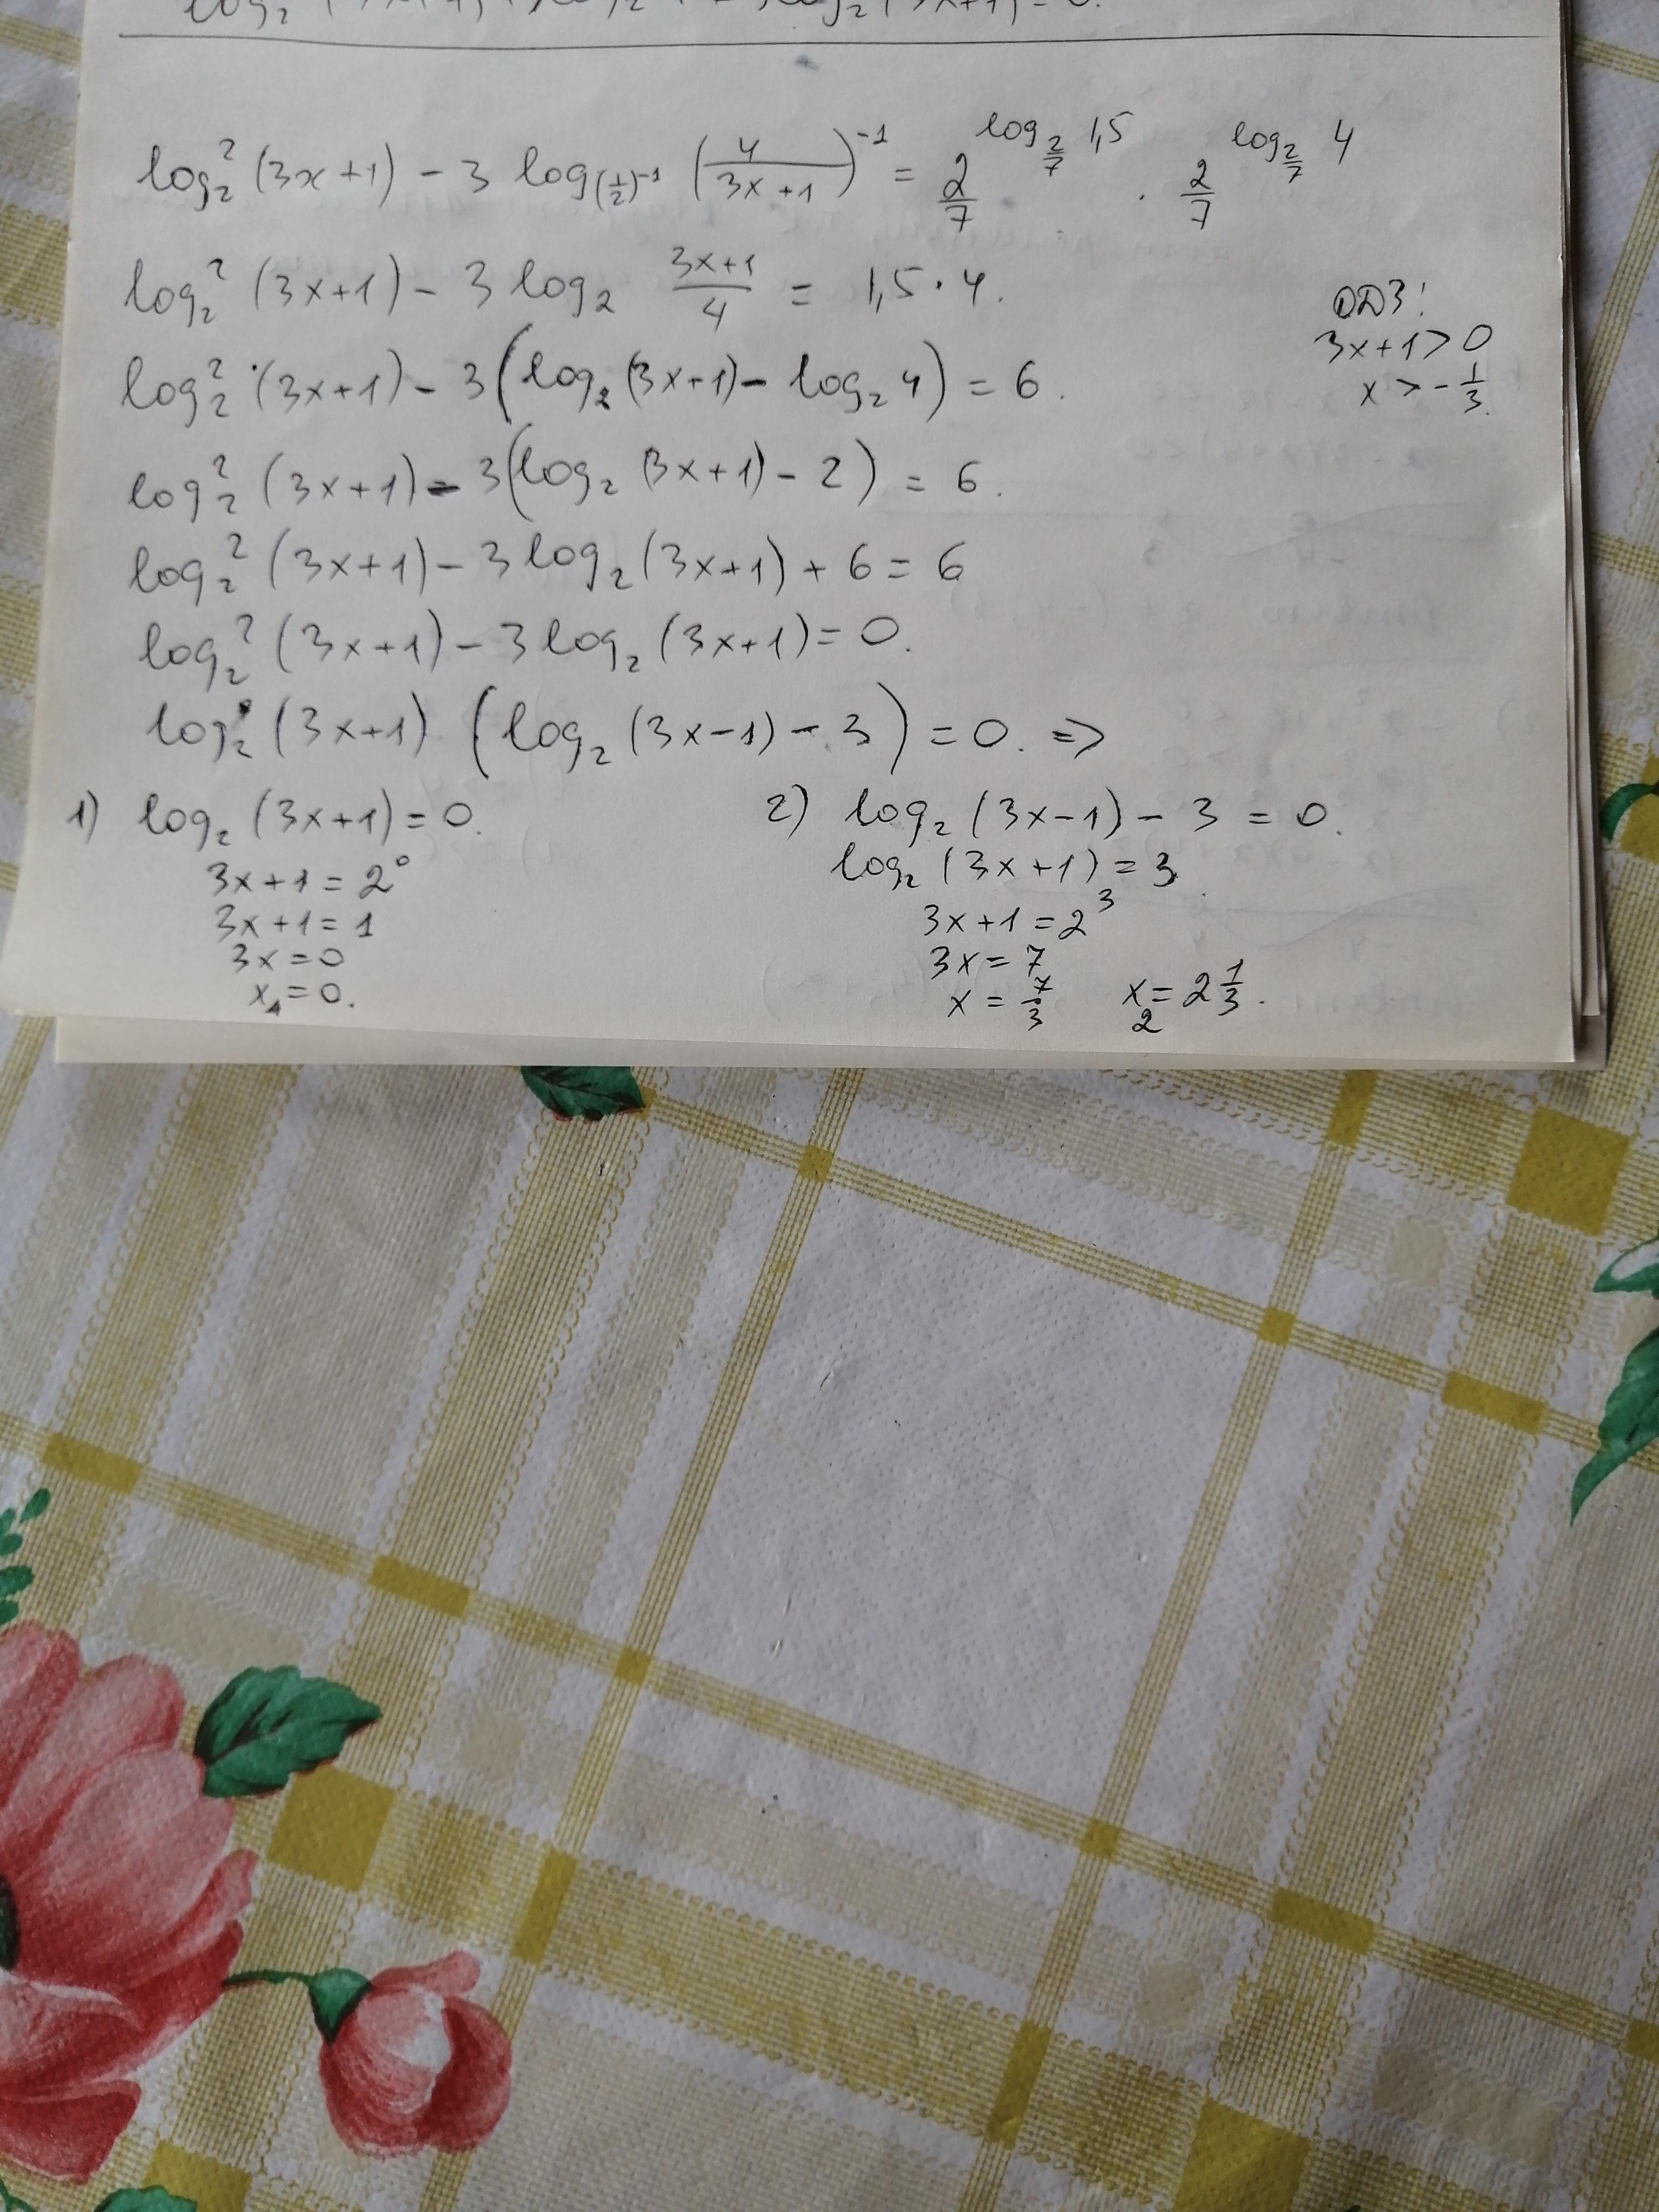 log₂² (3x+1) - 3 log_(1/2)⁻¹ (4/(3x+1))⁻¹ = 2/7^(log_(2/7) 1,5) · 2/7^(log_(2/7) 4)
log₂² (3x+1) - 3 log₂ (3x+1)/4 = 1,5·4.
ОДЗ:
3x+1>0
x > -1/3.
log₂² (3x+1) - 3(log₂ (3x+1) - log₂ 4) = 6.
log₂² (3x+1) - 3(log₂ (3x+1) - 2) = 6.
log₂² (3x+1) - 3 log₂ (3x+1) + 6 = 6
log₂² (3x+1) - 3 log₂ (3x+1) = 0.
log₂ (3x+1) (log₂ (3x-1) - 3) = 0. =>
1) log₂ (3x+1) = 0.
3x+1 = 2⁰
3x+1 = 1
3x = 0
x₁ = 0.
2) log₂ (3x-1) - 3 = 0.
log₂ (3x+1) = 3.
3x+1 = 2³
3x = 7
x = 7/3 x₂ = 2 1/3.